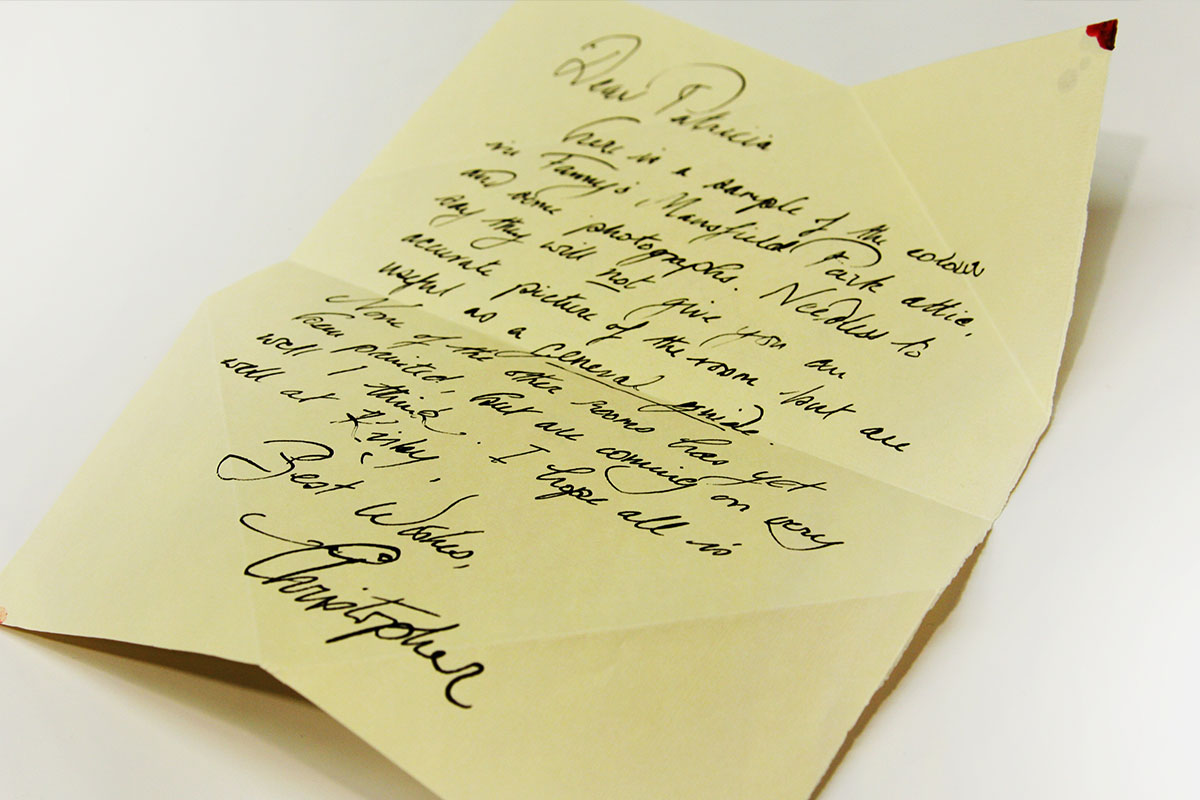 Dear Patricia
here is a sample of the colour
in Fanny's, Mansfield Park attic,
and some photographs. Needless to
say they will not give you an
accurate picture of the room but are
useful as a general guide.
None of the other rooms has yet
been painted, but are coming on very
well I think. I hope all is
well at Kirby,
Best Wishes,
Christopher